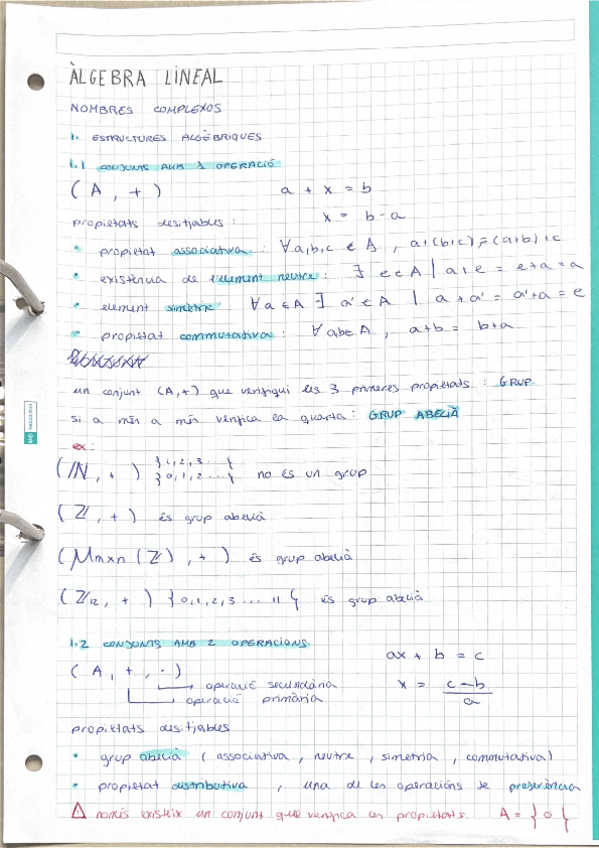 ÀLGEBRA LINEAL
NOMBRES COMPLEXOS
1. ESTRUCTURES ALGÈBRIQUES
1.1 CONJUNTS AMB 1 OPERACIÓ
(A, +) a + x = b
propietats desitjables: x = b - a
• propietat associativa: ∀a,b,c ∈ A, a+(b+c) = (a+b)+c
• existència de l'element neutre: ∃ e∈A | a+e = e+a = a
• element simètric: ∀a∈A ∃ a'∈A | a+a' = a'+a = e
• propietat commutativa: ∀ab∈A, a+b = b+a
un conjunt (A,+) que verifiqui les 3 primeres propietats: GRUP
si a més a més verifica la quarta: GRUP ABELIÀ
ex:
(ℕ, +) {1,2,3...} {0,1,2...} no és un grup
(ℤ, +) és grup abelià
(Mmxn(ℤ), +) és grup abelià
(ℤ12, +) {0,1,2,3...11} és grup abelià
1.2 CONJUNTS AMB 2 OPERACIONS
ax + b = c
(A, +, ·) x = (c-b)/a
operació secundària
operació primària
propietats desitjables
• grup abelià (associativa, neutre, simetria, commutativa)
• propietat distributiva, una de les operacions té preferència
⚠ només existeix un conjunt que verifica les propietats. A = {0}